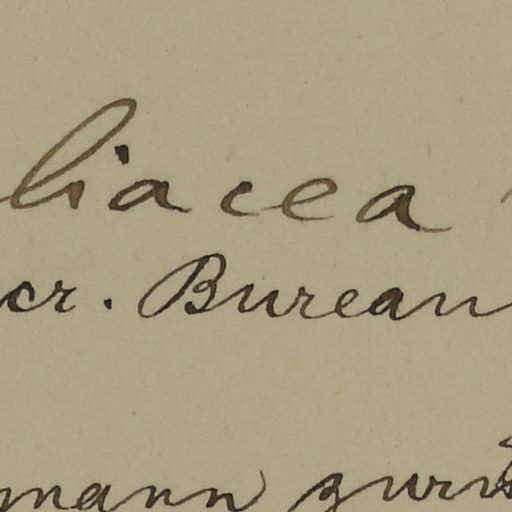 liacea
cr. Bureau
mann zurü